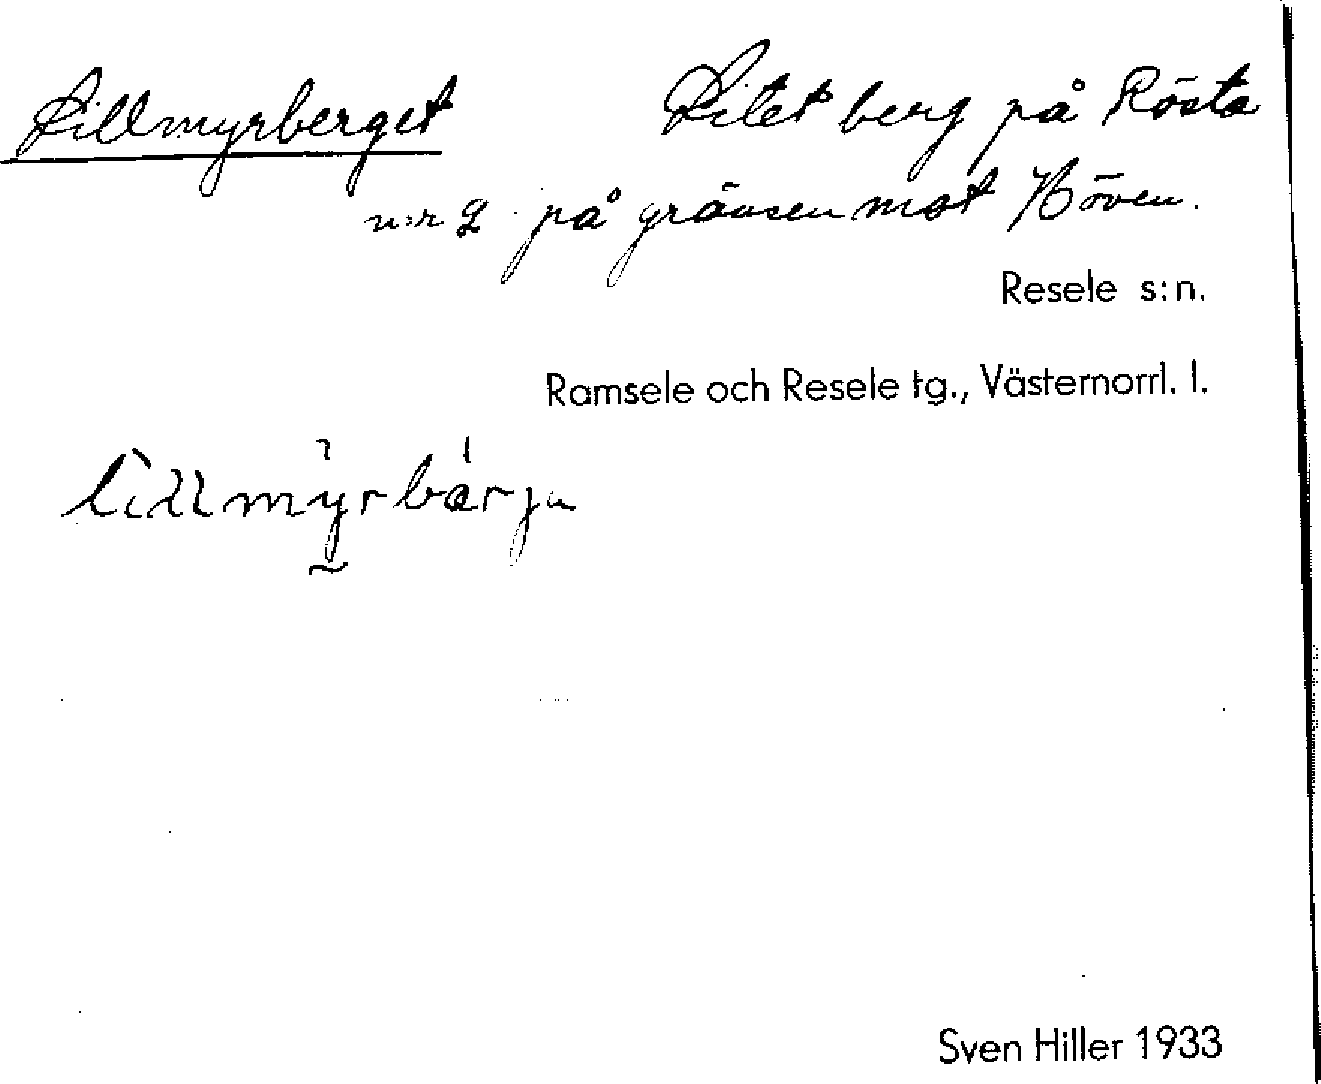 Lillmyrberget Litet berg på Rösta
n:r 2 på gränsen mot Höven.
Resele s:n.
Ramsele och Resele tg., Västernorrl. l.
Sven Hiller 1933